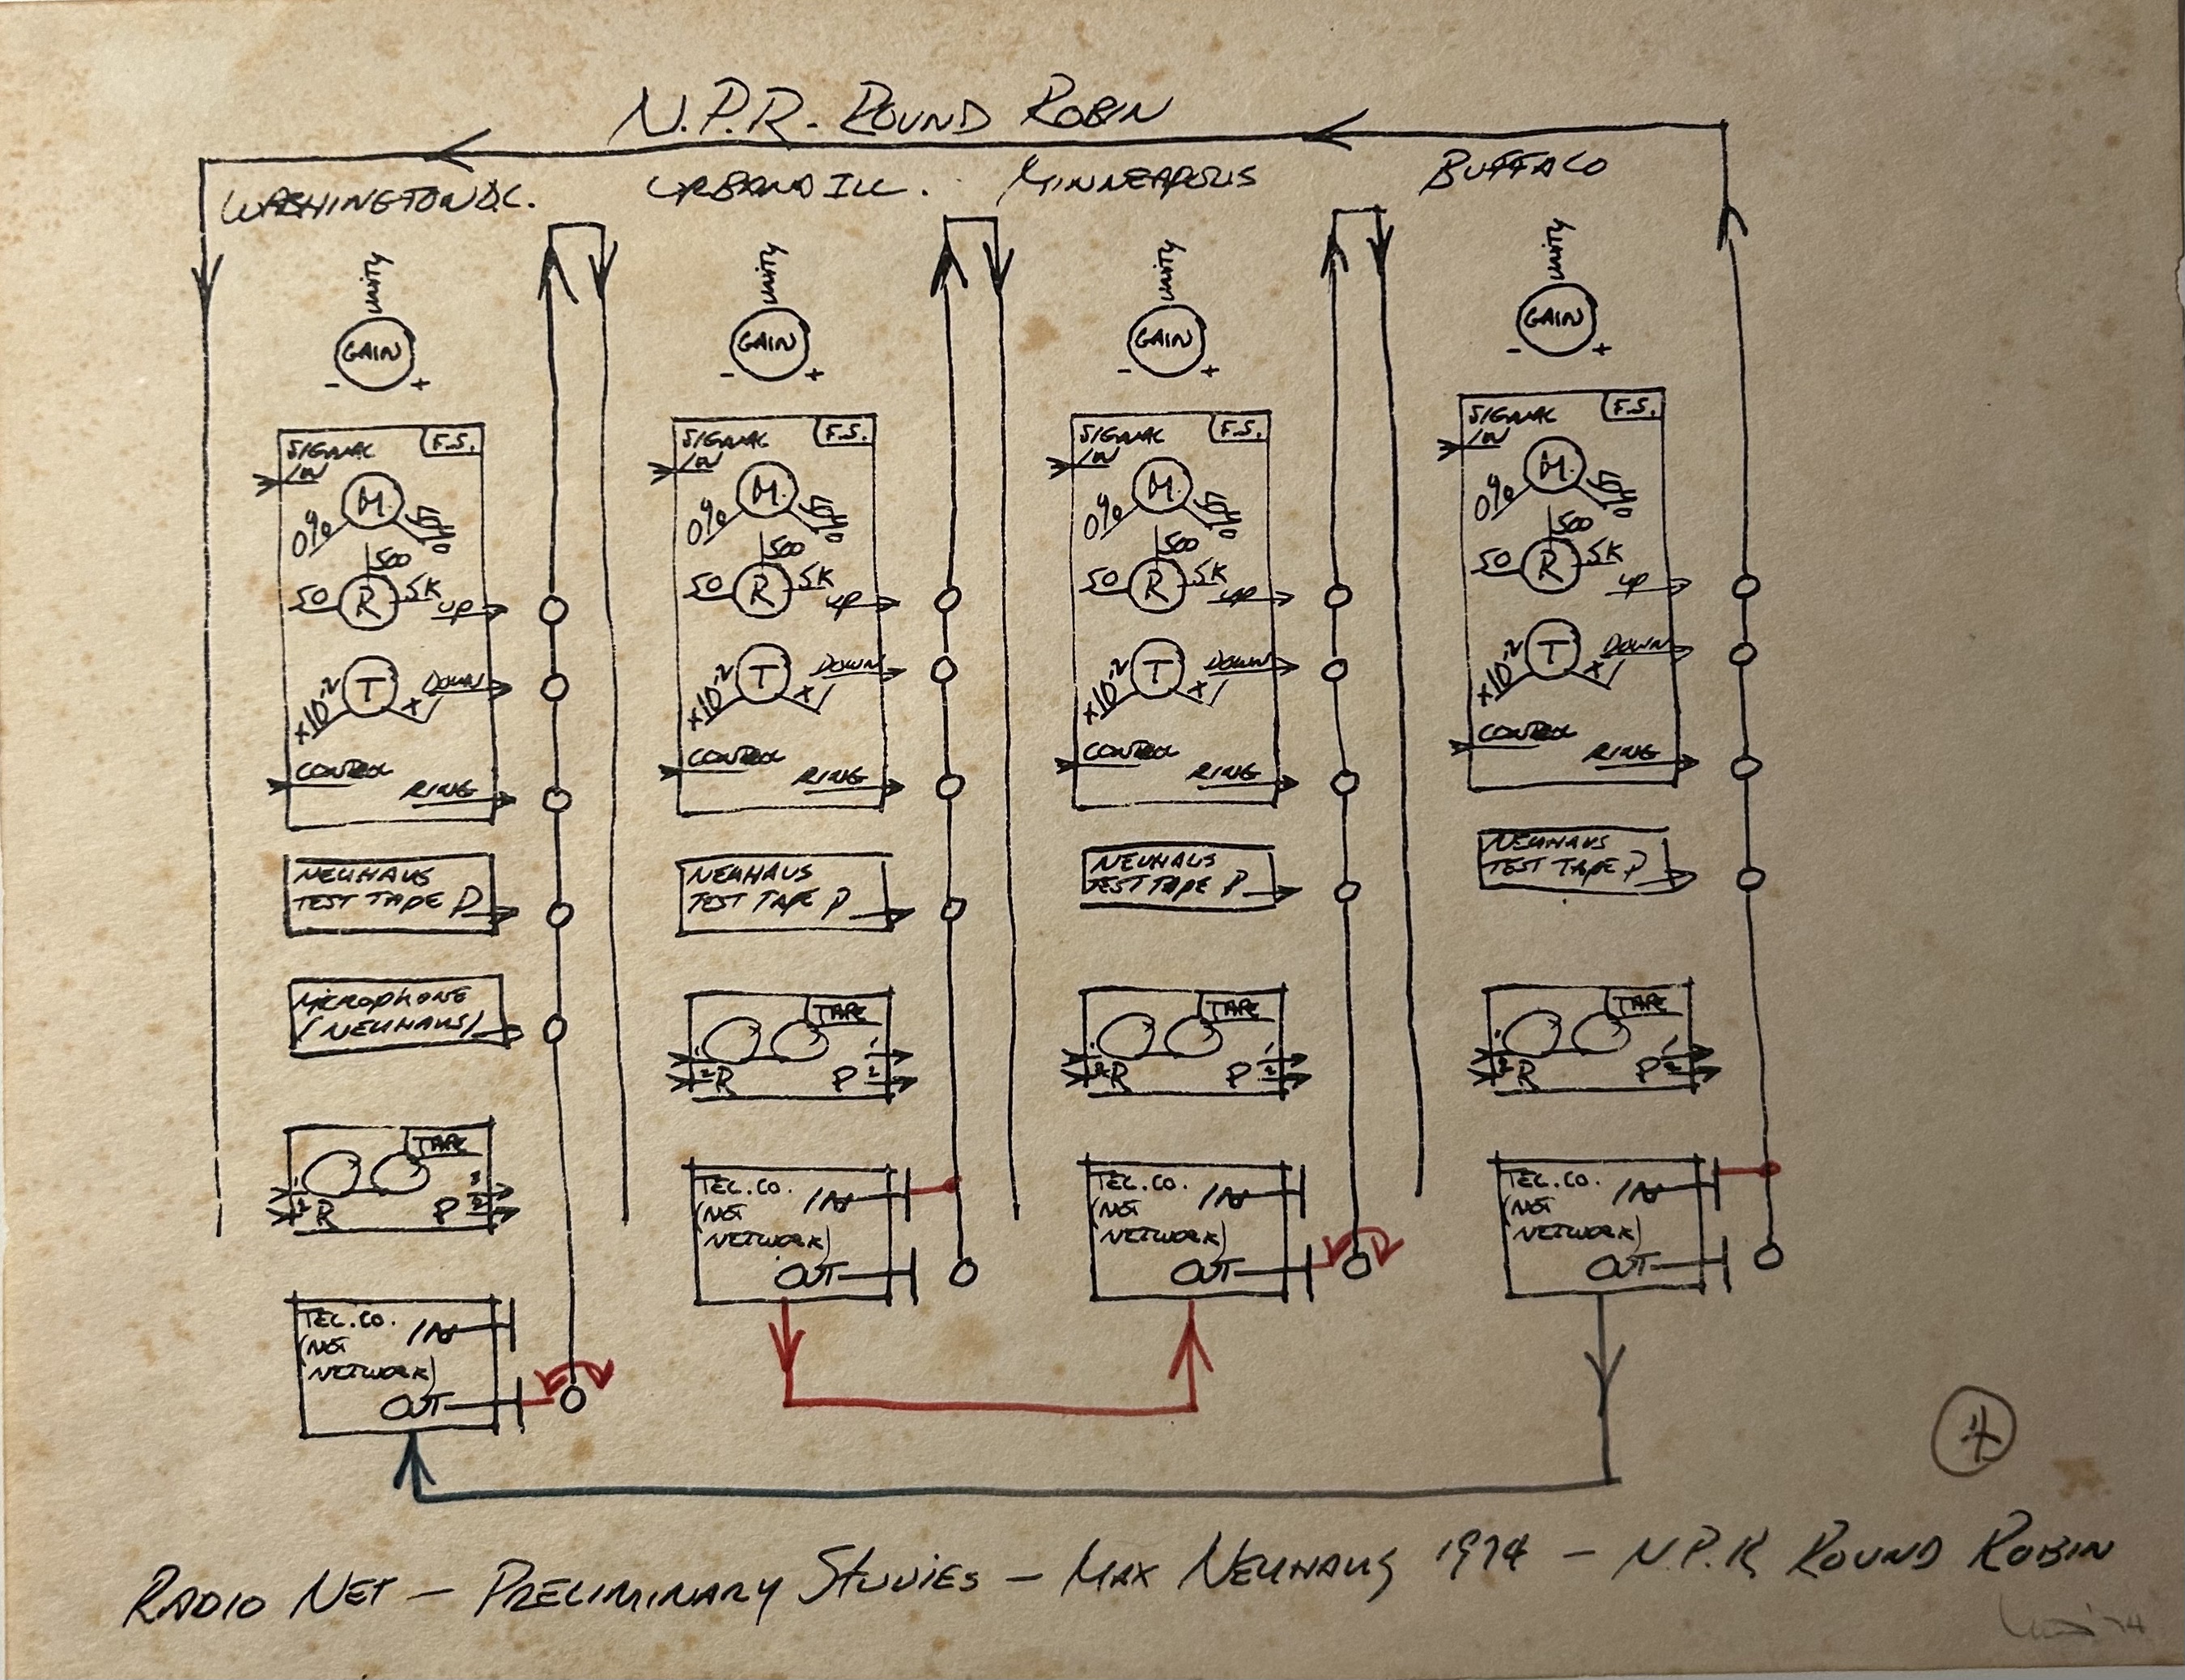 N.P.R. ROUND ROBIN
WASHINGTON D.C.
UNITY
GAIN
- +
SIGNAL IN
F.S.
M.
0%
500
50 R 5K
UP
T
x10⁻² x1
DOWN
CONTROL
RING
NEUHAUS
TEST TAPE P
MICROPHONE
(NEUHAUS)
TAPE
1 2 R P 1 2
TEL.CO. IN
(NOT
NETWORK)
OUT
URBANA ILL.
UNITY
GAIN
- +
SIGNAL IN
F.S.
M.
0%
500
50 R 5K
UP
T
x10⁻² x1
DOWN
CONTROL
RING
NEUHAUS
TEST TAPE P
TAPE
1 2 R P 1 2
TEL.CO. IN
(NOT
NETWORK)
OUT
MINNEAPOLIS
UNITY
GAIN
- +
SIGNAL IN
F.S.
M.
0%
500
50 R 5K
UP
T
x10⁻² x1
DOWN
CONTROL
RING
NEUHAUS
TEST TAPE P
TAPE
1 2 R P 1 2
TEL.CO. IN
(NOT
NETWORK)
OUT
BUFFALO
UNITY
GAIN
- +
SIGNAL IN
F.S.
M.
0%
500
50 R 5K
UP
T
x10⁻² x1
DOWN
CONTROL
RING
NEUHAUS
TEST TAPE P
TAPE
1 2 R P 1 2
TEL.CO. IN
(NOT
NETWORK)
OUT
4
RADIO NET – PRELIMINARY STUDIES – MAX NEUHAUS 1974 – N.P.R ROUND ROBIN